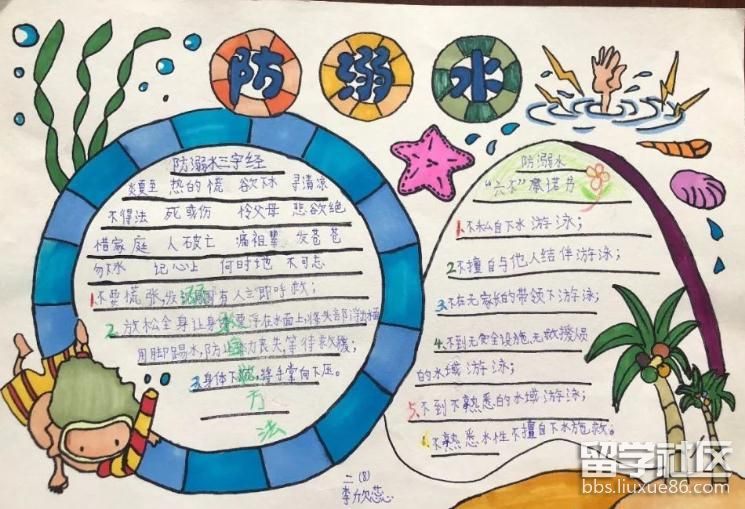 防溺水
防溺水三字经
炎夏至 热的慌 欲下水 寻清凉
不得法 死或伤 怜父母 悲欲绝
惜家庭 人破亡 痛祖辈 发苍苍
勿下水 记心上 何时地 不可忘
1.不要慌张,发现周围有人立即呼救;
2.放松全身让身体漂浮在水面上,将头部浮出水面
用脚踢水,防止体力丧失,等待救援;
3.身体下沉,将手掌向下压。
方
法
防溺水
“六不”承诺书
1.不私自下水游泳;
2.不擅自与他人结伴游泳;
3.不在无家长的带领下游泳;
4.不到无安全设施、无救援员
的水域游泳;
5.不到不熟悉的水域游泳;
6.不熟悉水性不擅自下水施救。
二(8)
李欣蕊
留学社区
bbs.liuxue86.com